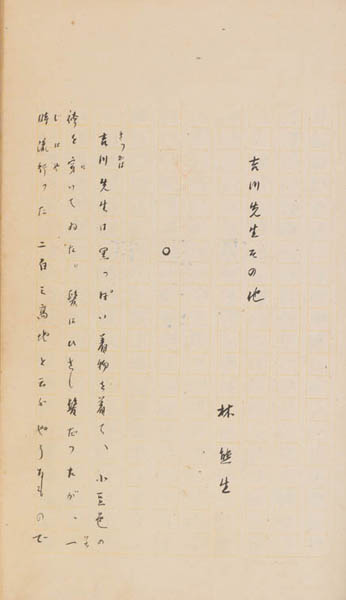 吉川先生その他
林熊生
○
よつかは
吉川先生は黒つぽい着物を着て、小豆色の
袴を穿いてゐた。髪はひさし髪だつたが、一
時流行つた二百三高地と云ふやうなもので